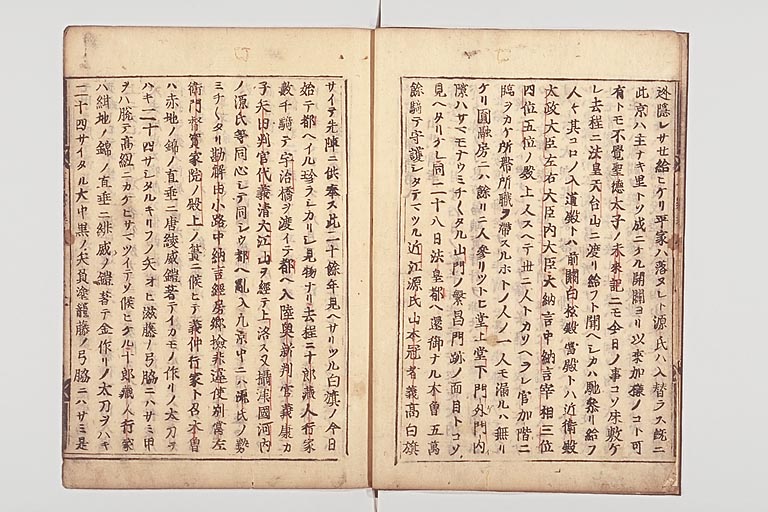 迯隠レサセ給ヒケリ平家ハ落タレト源氏ハ入替ラス既ニ
此京ハ主ナキ里トソ成ニケル開闢ヨリ以来加様ノコト可
有トモ不覺聖徳太子ノ未来記ニモ今日ノ事コソ床敷ケ
レ去程ニ法皇天台山ニ渡リ給フト聞ヘシカハ馳参リ給フ
人々其コロノ入道殿トハ前關白松殿當殿トハ近衛殿
太政大臣左右大臣内大臣大納言中納言宰相三位
四位五位ノ殿上人スヘテ世ニ人トカソヘラレ官加階ニ
臨ヲカケ所帯所職ヲ帯スルホトノ人ノ一人モ漏ルハ無リ
ケリ圓融房ニハ餘リニ人参リツトヒ堂上堂下門外門内
隙ハサマモナウミチくタル山門ノ繁昌門跡ノ面目トコソ
見ヘタリケレ同二十八日法皇都ヘ還御ナル木曽五萬
餘騎テ守護シタテマツル近江源氏山本冠者義高白旗
サイテ先陣ニ供奉ス此二十餘年見ヘサリツル白旗ノ今日
始テ都ヘイル珍ラシカリシ見物ナリ去程ニ十郎蔵人行家
数千騎テ宇治橋ヲ渡イテ都ヘ入陸奥新判官義康カ
子矢田判官代義清大江山ヲ経テ上洛ス又攝津國河内
ノ源氏等同心シテ同シウ都ヘ亂入凡京中ニハ源氏ノ勢
ミチくタリ勘解由小路中納言経房卿檢非違使別當左
衛門督實家院ノ殿上ノ簀ニ候ヒテ義仲行家ト召木曽
ハ赤地ノ錦ノ直垂ニ唐綾威鎧著テイカモノ作リノ太刀ヲ
ハキ二十四サシタルキリフノ矢オヒ滋藤ノ弓脇ニハサミ甲
ヲハ脱テ高紐ニカケヒサマツイテソ候ヒケル十郎蔵人行家
ハ紺地ノ錦ノ直垂ニ緋威ノ鎧著テ金作リノ太刀ヲハキ
二十四サイタル大中黒ノ矢負塗籠藤ノ弓脇ニハサミ是